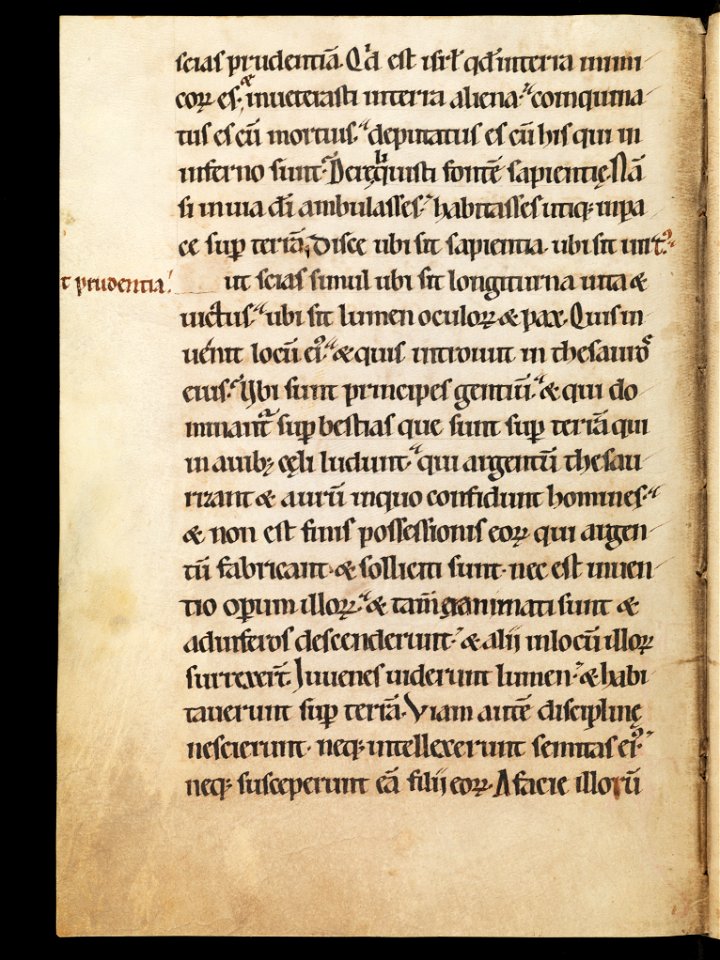 scias prudentiā. Qͥd est isrł qd̄ interra inimi
coꝝ es. inueterasti interra aliena. coinquina
tus es cū mortuis. deputatus es cū his qui in
inferno sunt. Dereliquisti fontē sapientię. Nā
si in uia dī ambulasses. habitasses utiq; in pa
ce sup terrā. Disce ubi sit sapientia. ubi sit uirt᷒.
t prudentia.
ut scias simul ubi sit longiturna uita &
uictus. ubi sit lumen oculoꝝ & pax. Quis in
uenit locū ei᷒. & quis introiuit in thesauros
eius. Ubi sunt principes gentiū. & qui do
minant̃ sup bestias que sunt sup terrā qui
in auib; cęli ludunt. qui argentū thesau
rizant & aurū inquo confidunt homines.
& non est finis possessionis eoꝝ qui argen
tū fabricant. & solliciti sunt. nec est inuen
tio operum illoꝝ. & sunt &
ad inferos descenderunt. & alij in locū illoꝝ
surrexer̄t. Iuuenes uiderunt lumen. & habi
tauerunt sup terrā. Viam autē disciplinę
nescierunt. neq; intellexerunt semitas ei᷒.
neq; susceperunt eā filij eoꝝ. A facie illorū